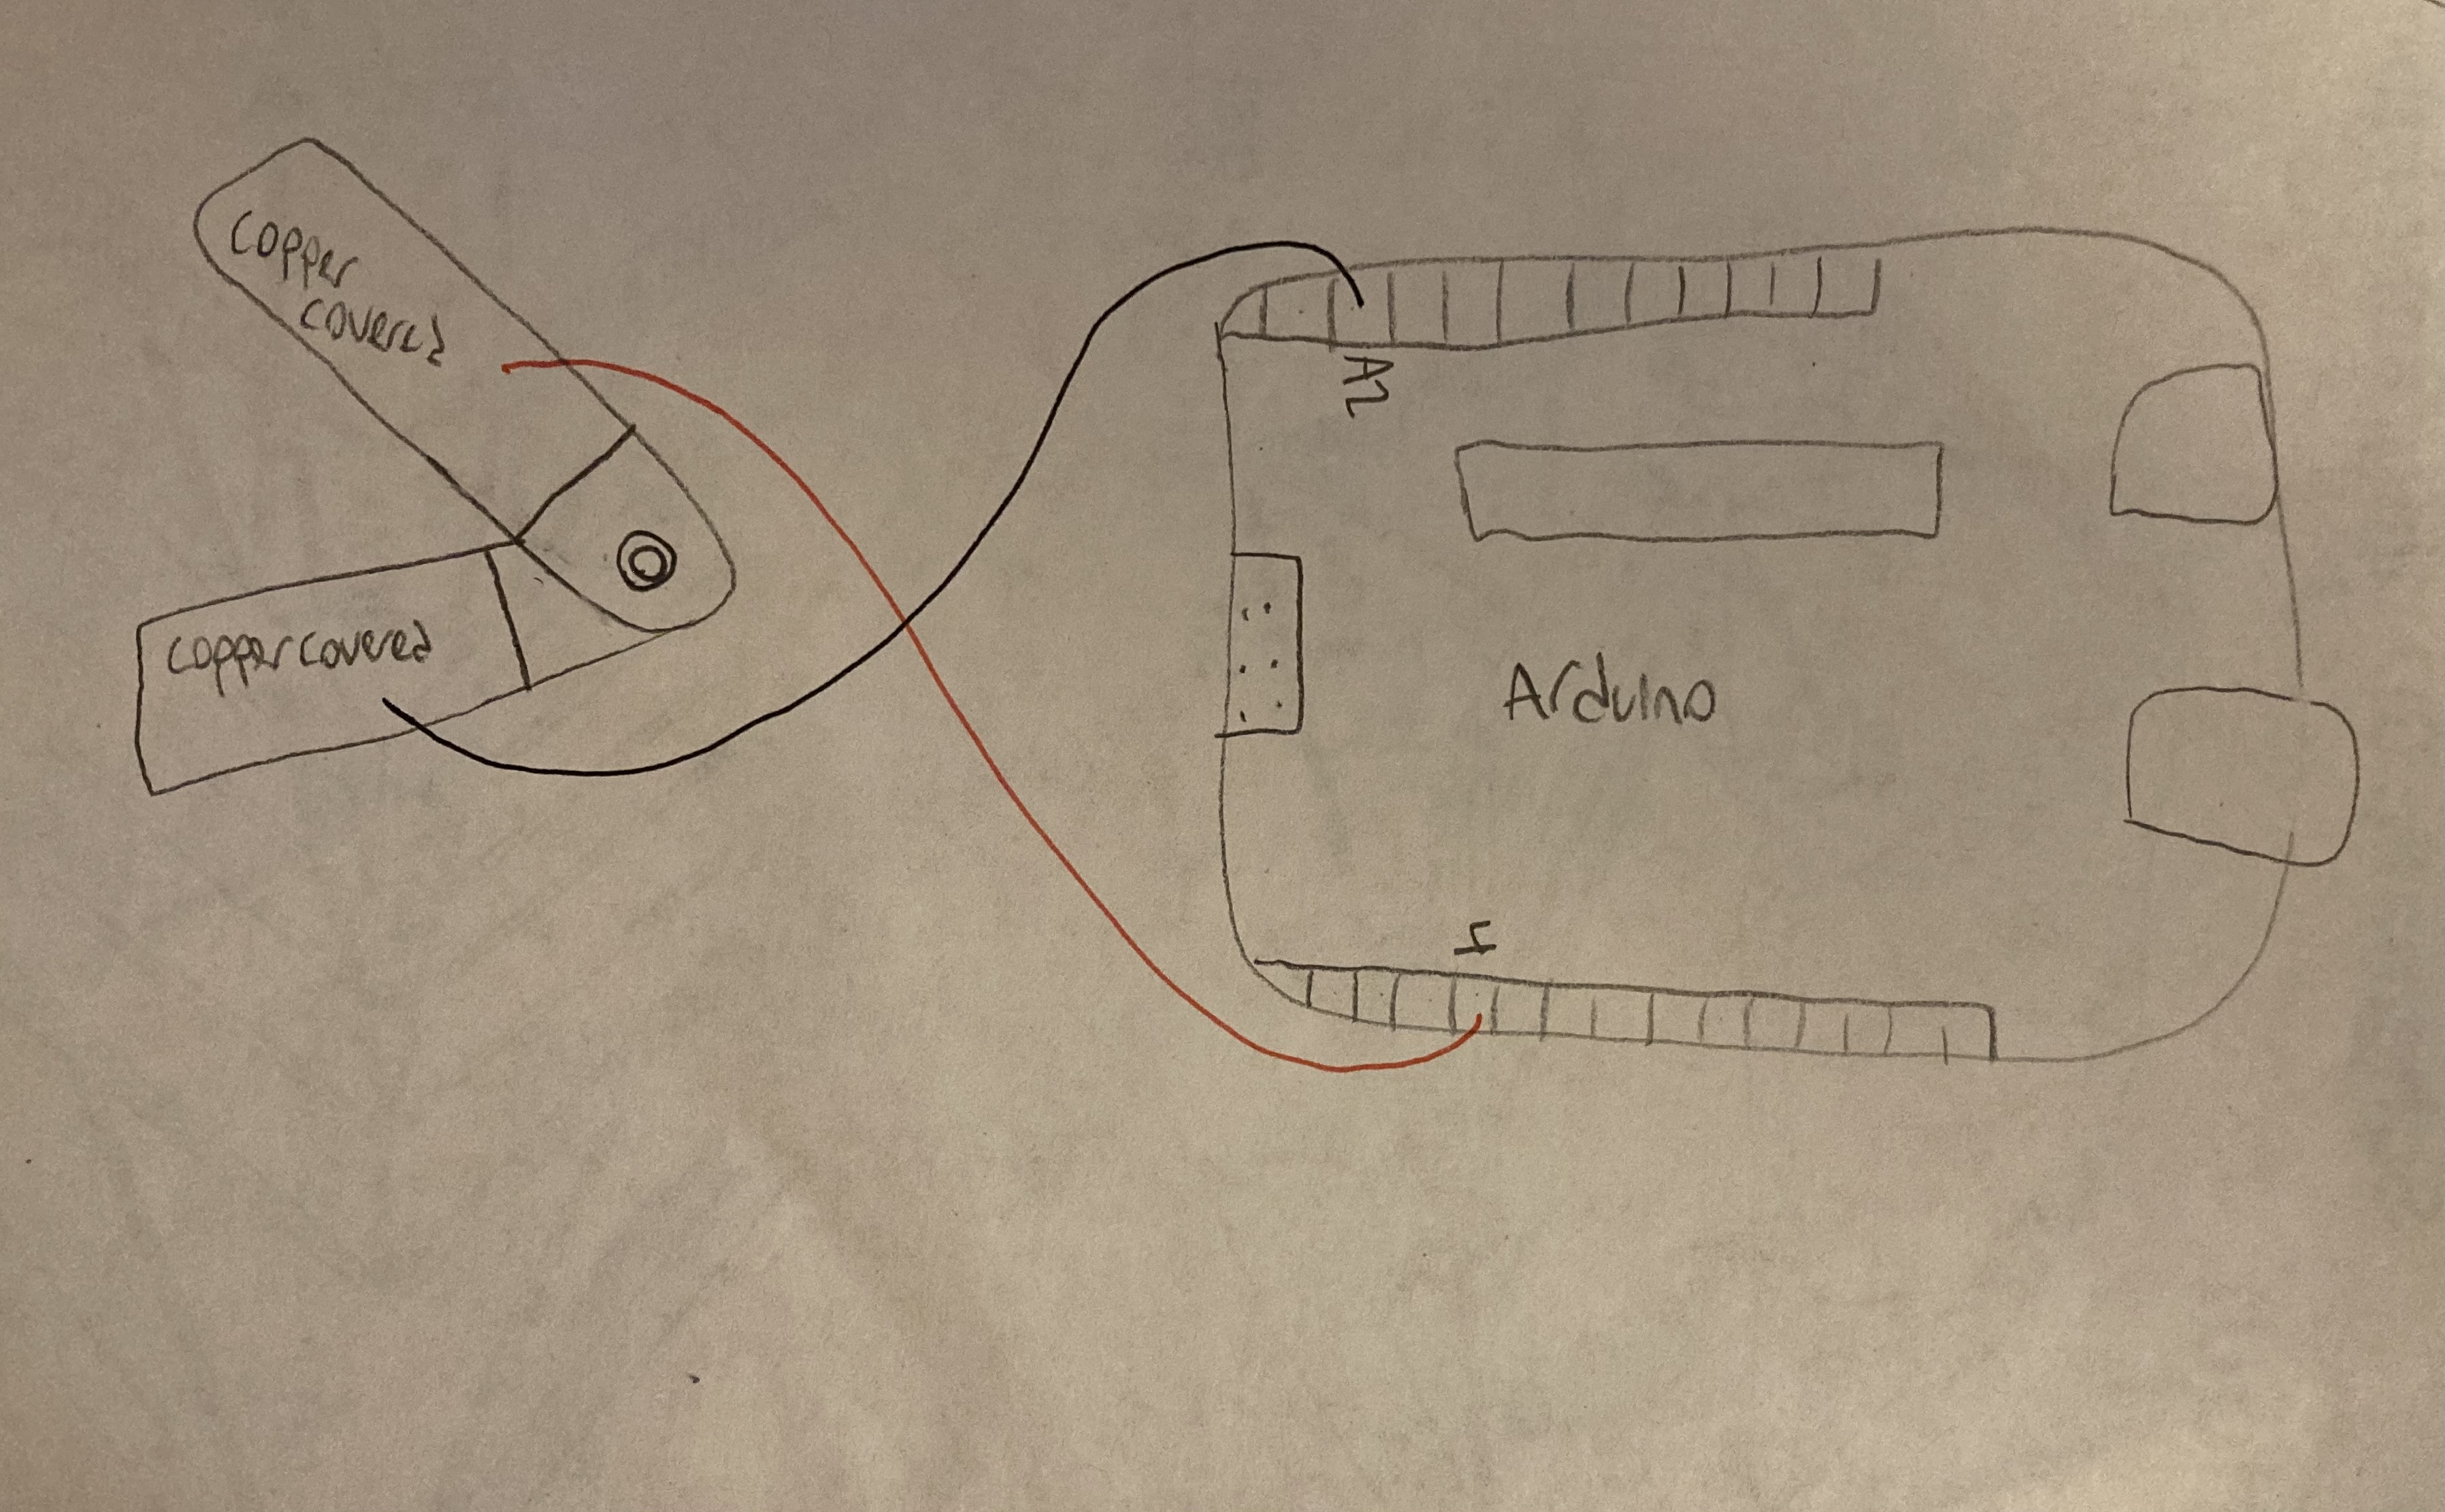 copper
covered
A2
copper covered
Arduino
4